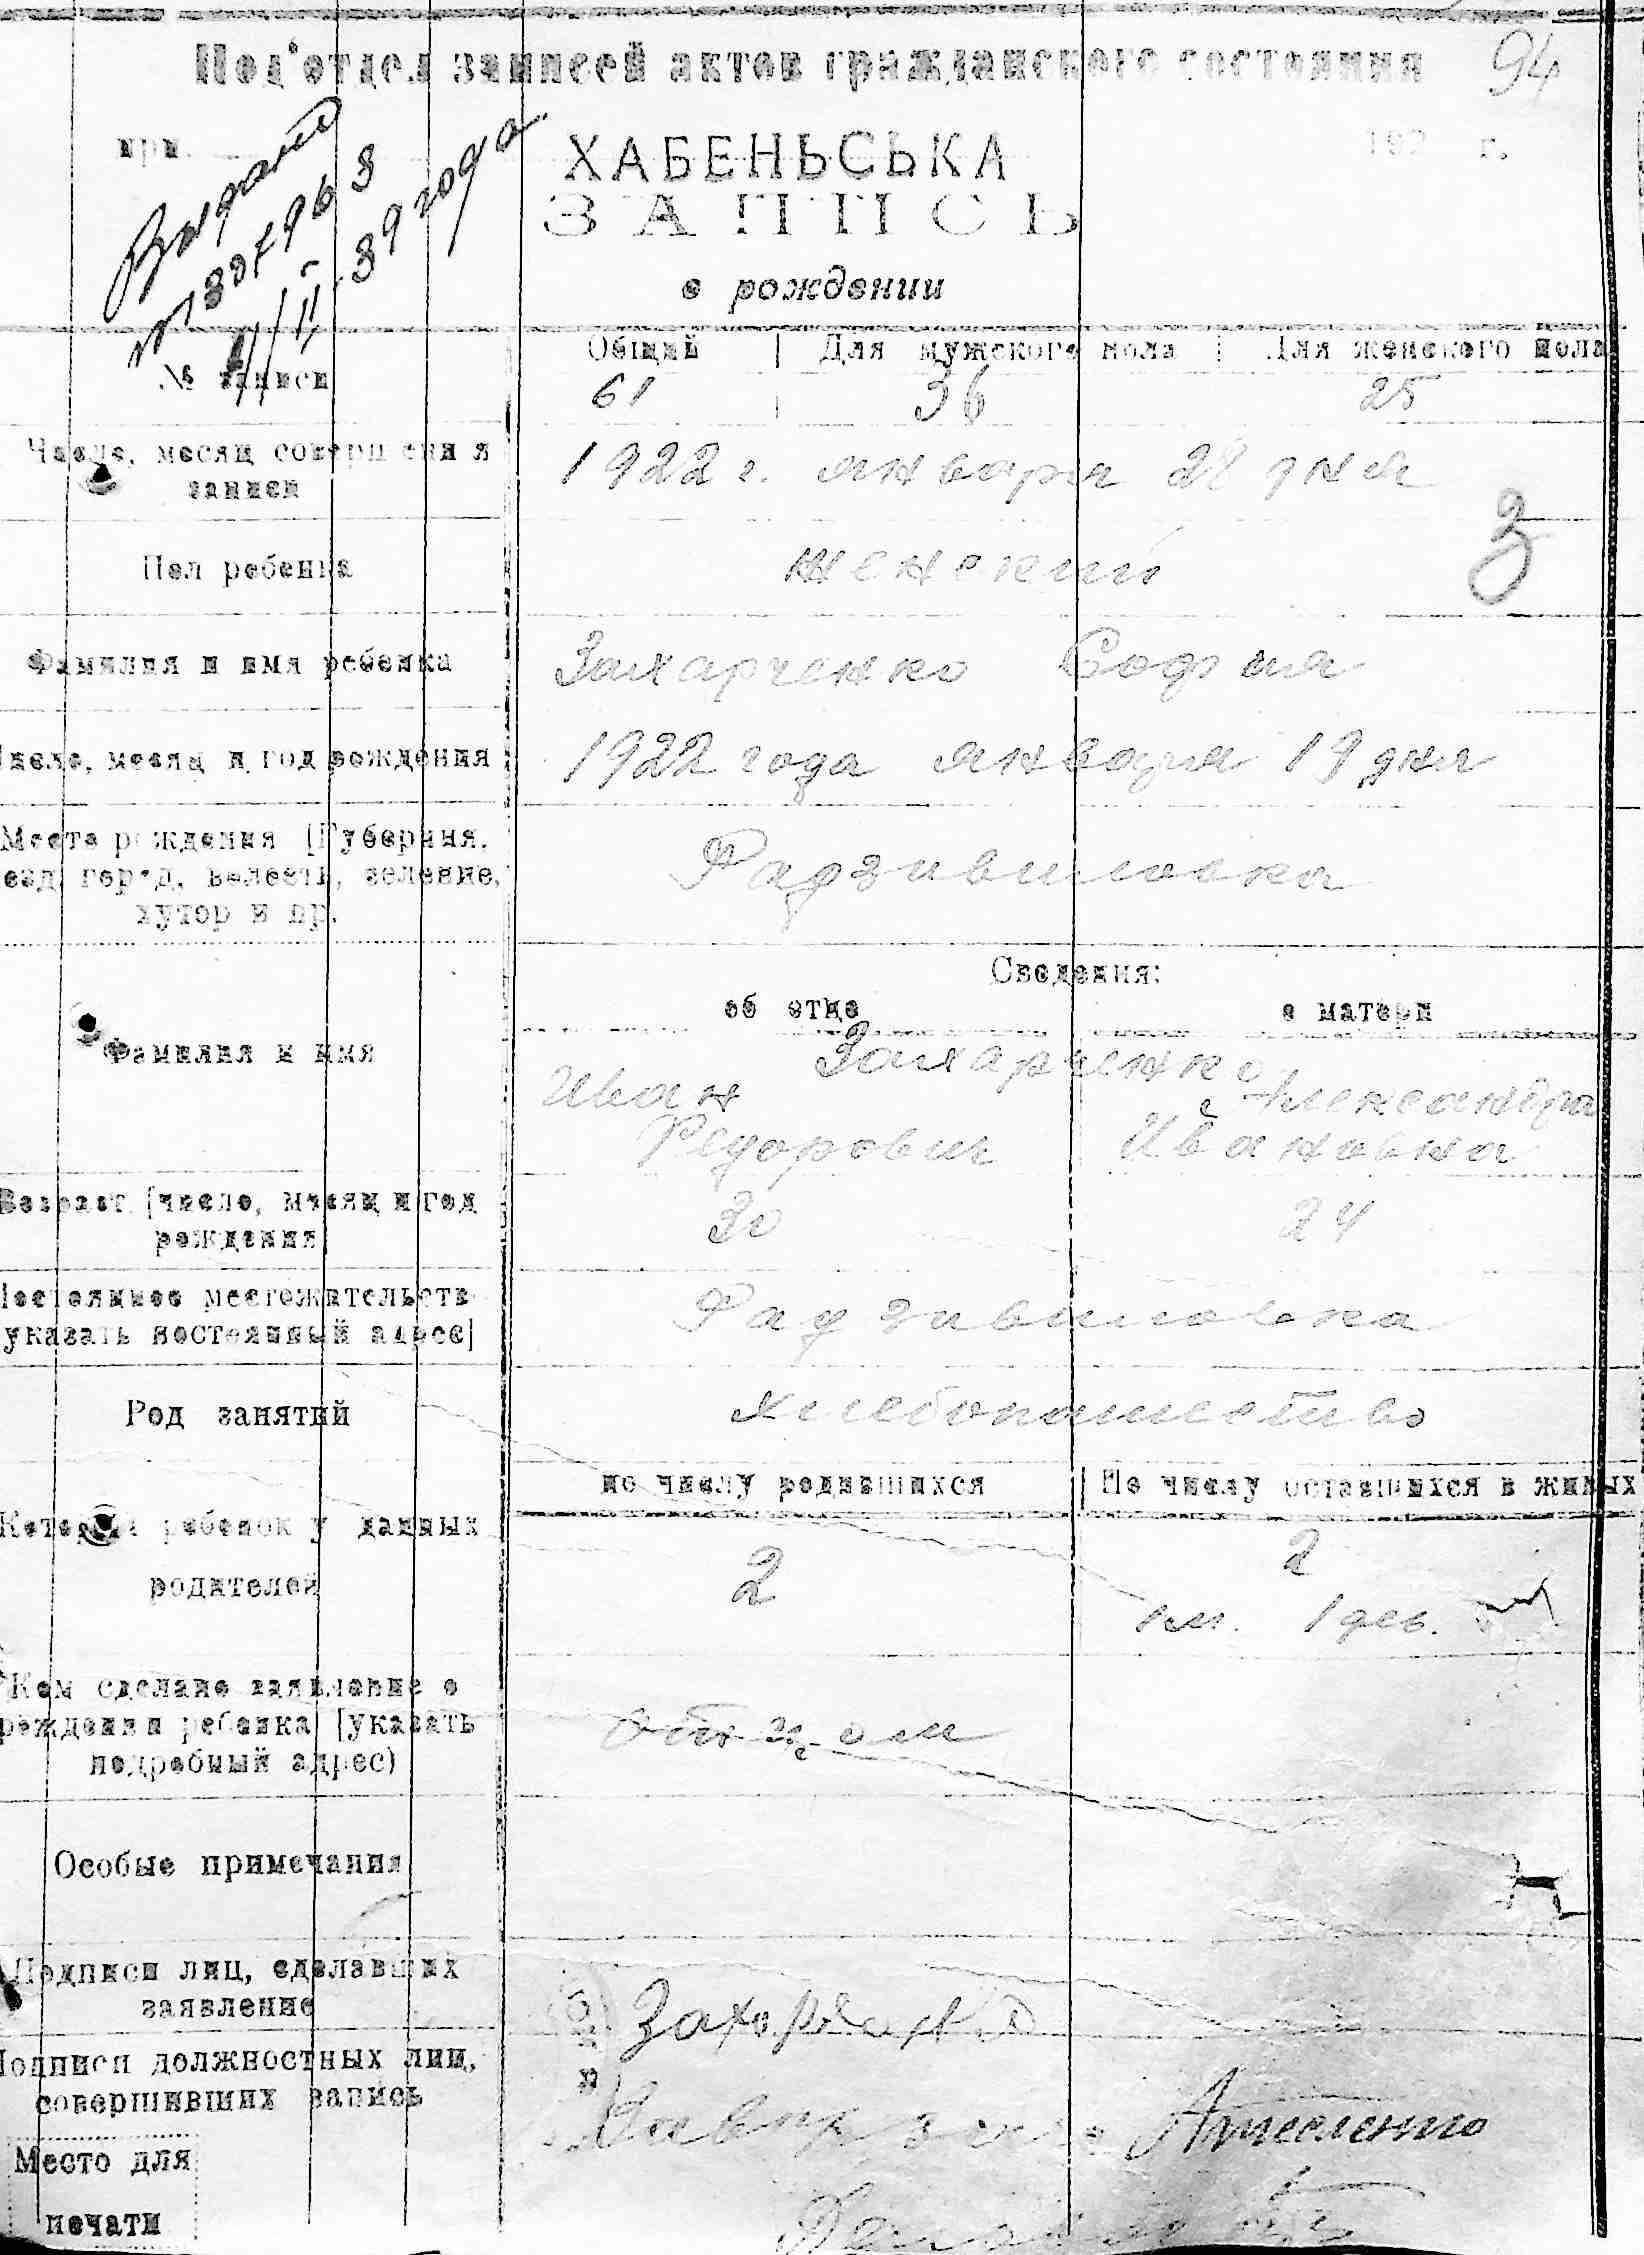 Под'отдел записей актов гражданского состояния 94
при 192 г.
ХАБЕНЬСЬКА
ЗАПИСЬ
о рождении
39 года
Общий Для мужского пола Для женского пола
№ записи 61 36 25
Число, месяц совершения записи
1922 г. января 28 дня
3
Пол ребенка женский
Фамилия и имя ребенка Захарченко София
Число, месяц и год рождения 1922 года января 19 дня
Место рождения [Губерния,
уезд, город, волость, селение,
хутор и пр.
Радзивиловка
Сведения:
об отце о матери
Фамилия и имя
Захарченко
Иван Александра
Федорович Ивановна
Возраст [число, месяц и год
рождения
30 24
Постоянное местожительств
указать постоянный адрес]
Радзивиловка
Род занятий хлебопашество
по числу родившихся По числу оставшихся в живых
Который ребенок у данных
родителей
2 2
1 м. 1 дев.
Кем сделано заявление о
рождении ребенка [указать
подробный адрес)
Отцом
Особые примечания
Подписи лиц, сделавших
заявление
Подписи должностных лиц,
совершивших запись
Место для
печати